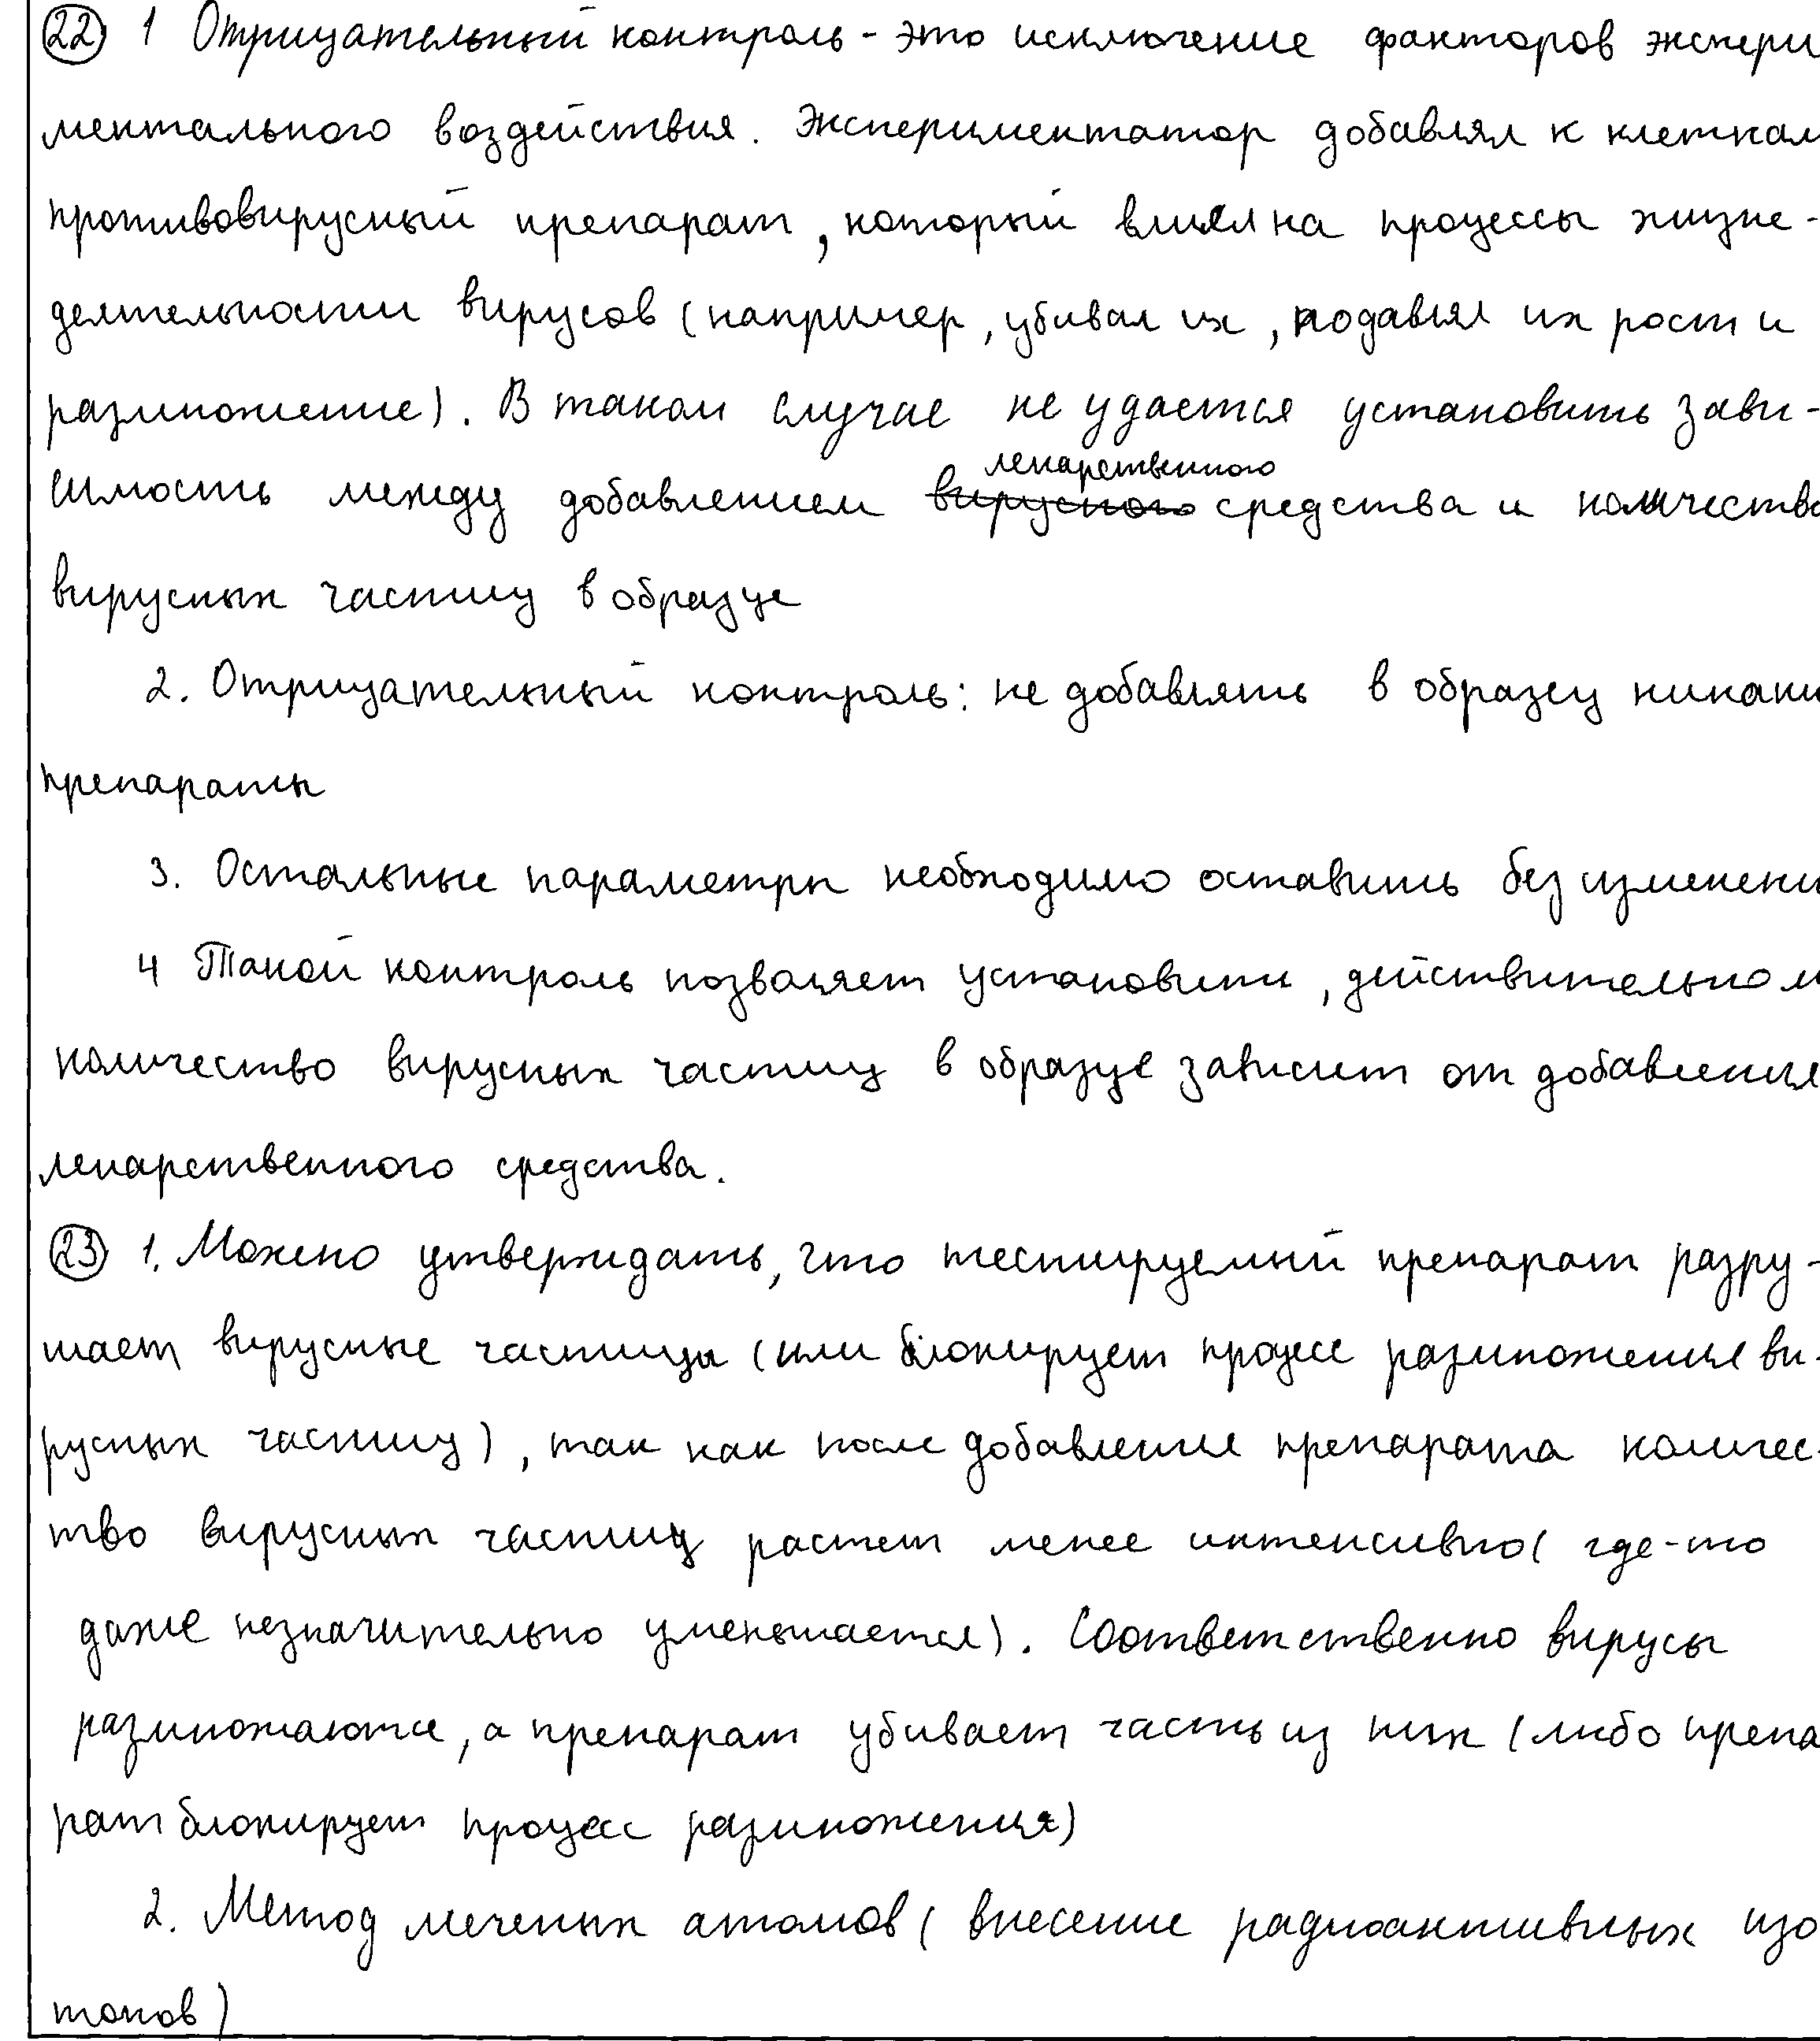 22 1 Отрицательный контроль - это исключение факторов экспери
ментального воздействия. Экспериментатор добавлял к клеткам
противовирусный препарат, который влиял на процессы жизне-
деятельности вирусов (например, убивал их, подавлял их рост и
размножение). В таком случае не удается установить зави-
симость между добавлением лекарственного вирусного средства и количество
вирусных частиц в образце
2. Отрицательный контроль: не добавлять в образец никаки
препараты
3. Остальные параметры необходимо оставить без изменени
4 Такой контроль позволяет установить, действительно л
количество вирусных частиц в образце зависит от добавления
лекарственного средства.
23 1. Можно утверждать, что тестируемый препарат разру-
шает вирусные частицы (или блокирует процесс размножения ви-
русных частиц), так как после добавления препарата количес-
тво вирусных частиц растет менее интенсивно( где-то
даже незначительно уменьшается). Соответственно вирусы
размножаются, а препарат убивает часть из них (либо препа
рат блокирует процесс размножения)
2. Метод меченых атомов ( внесение радиоактивных изо
топов)